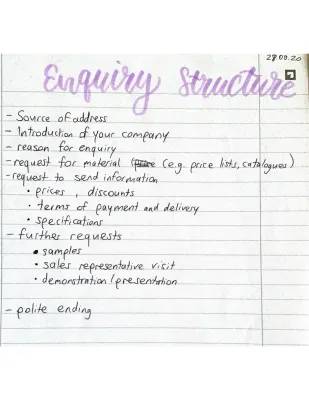 27.00.20
Enquiry Structure
- Source of address
- Introduction of your company
- reason for enquiry
- request for material (e.g. price lists, catalogues)
- request to send information
• prices, discounts
• terms of payment and delivery
• specifications
- further requests
• samples
• sales representative visit
• demonstration / presentation
- polite ending